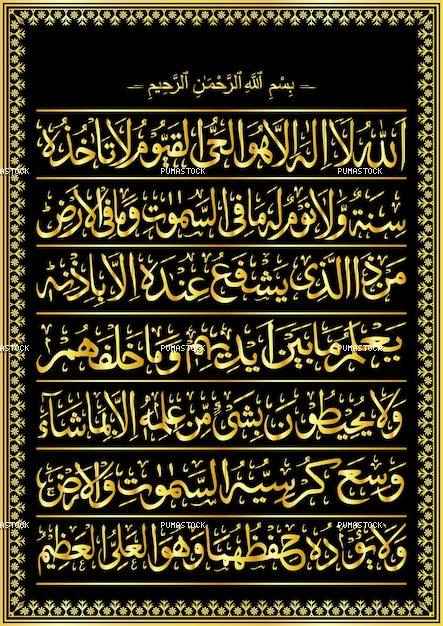 بِسْمِ اللَّهِ الرَّحْمَٰنِ الرَّحِيمِ
اَللّٰهُ لَا اِلٰهَ اِلَّا هُوَ الْحَيُّ الْقَيُّوْمُ لَا تَأْخُذُهٗ
سِنَةٌ وَّلَا نَوْمٌ لَهٗ مَا فِي السَّمٰوٰتِ وَمَا فِي الْاَرْضِ
مَنْ ذَا الَّذِيْ يَشْفَعُ عِنْدَهٗ اِلَّا بِاِذْنِهٖ
يَعْلَمُ مَا بَيْنَ اَيْدِيْهِمْ وَمَا خَلْفَهُمْ
وَلَا يُحِيْطُوْنَ بِشَيْءٍ مِّنْ عِلْمِهٖ اِلَّا بِمَا شَاءَ
وَسِعَ كُرْسِيُّهُ السَّمٰوٰتِ وَالْاَرْضَ
وَلَا يَئُوْدُهٗ حِفْظُهُمَا وَهُوَ الْعَلِيُّ الْعَظِيْمُ
PUMASTOCK PUMASTOCK
PUMASTOCK PUMASTOCK
PUMASTOCK PUMASTOCK